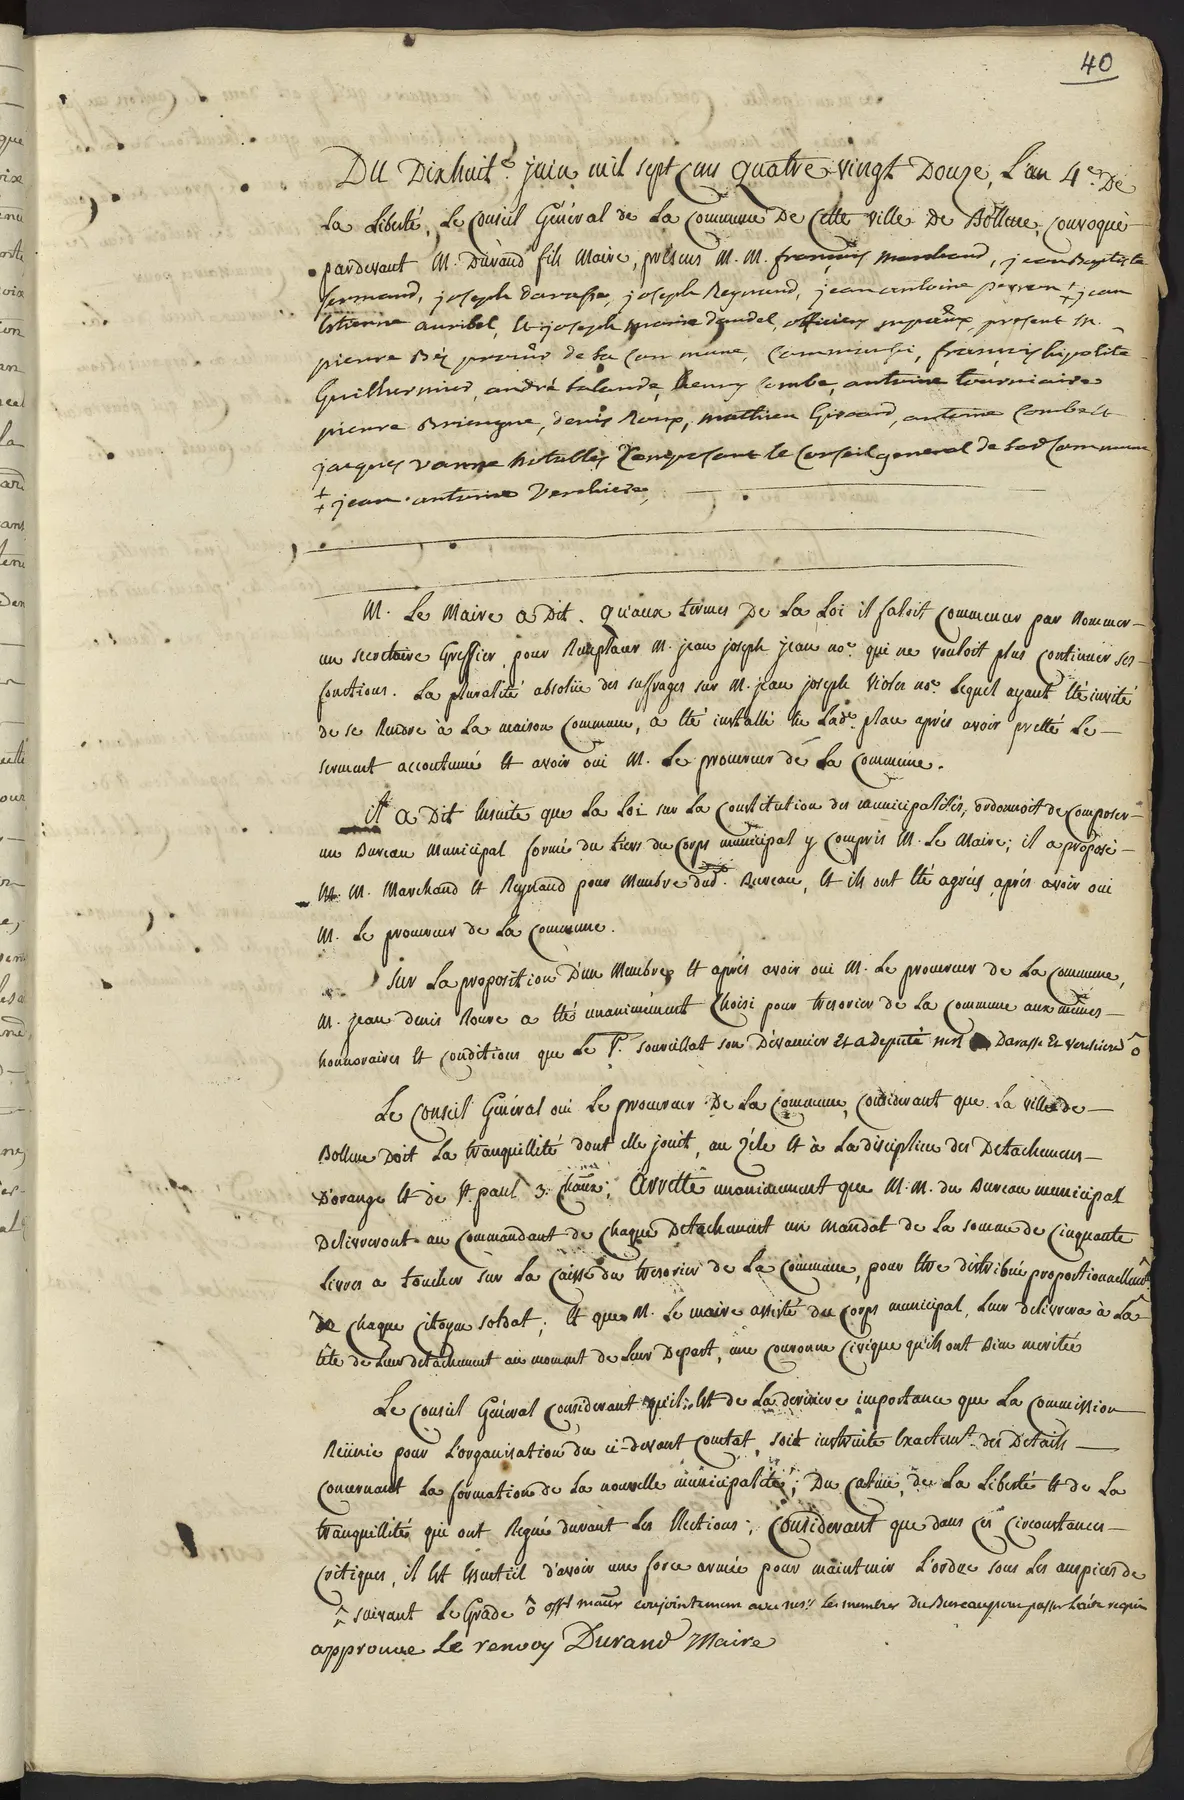 40
Du Dixhuit.e juin mil sept cens Quatre-vingt Douze, L'an 4.e De
La Liberté, Le Conseil Général de La Commune De Cette ville De Bollene, convoqué
pardevant M. Durand fils Maire, présens M. M. françois marchand, jean Baptiste
fermand, joseph darasse, joseph Reynaud, jean antoine perren ‡ jean
Etienne auribel, et joseph marie daudel, officiers mpaux, present m.
pierre Béz procur de la commune, françois hipolite
Guilhermier, andré Lalande, henry Combe, antoine tourniaire
pierre Briengue, denis Roux, mathieu Girard, antoine Combet
jacques vanne Notables Composant le Conseil general de lad. Commune
‡ jean antoine Verchiere,
M. Le Maire a Dit. qu'aux termes De La Loi il faloit commencer par Nommer
un secretaire Greffier, pour Remplacer M. jean joseph jean no.e qui ne vouloit plus continuer ses
fonctions. La pluralité absolüe des suffrages sur M. jean joseph Violes no.e Lequel ayant été invité
de se Rendre à La maison Commune, a été installé en Lad.e place après avoir pretté Le
serment accoutumé et avoir oui M. Le procureur de La Commune.
il a Dit Ensuite que La Loi sur La Constitution des municipalités, ordonnoit de composer
un Bureau Municipal formé du tiers du Corps municipal y compris M. Le Maire; il a proposé
M. M. Marchand et Reynaud pour Membre dud. Bureau, et ils ont été agréés après avoir oui
M. Le procureur de La Commune.
Sur La proposition D'un Membre, et après avoir oui M. Le procureur de La Commune,
M. jean denis Roure a été unanimément Choisi pour tresorier de La Commune aux mêmes
honnoraires et conditions que Le S.r souvillat son Dévancier Et a deputé mrs Darasse Et verchiere ô
Le Conseil Général oui Le procureur De La Commune, considerant que La ville de
Bollene Doit La tranquillité dont elle jouit, au zèle et à La discipline des Detachemens
D'orange et de St. paul 3. chaux; Arrette unanimement que M. M. du Bureau municipal
Delivreront au Commandant de Chaque Detachement un Mandat de La somme de Cinquante
Livres a toucher sur La Caisse du tresorier de La Commune, pour etre distribué proportionnellemt
de Chaque Citoyen soldat; et que M. Le maire assisté du Corps municipal, Leur delivrera à La
tête de Leur detachement au moment de Leur Depart, une couronne Civique qu'ils ont Bien meritée
Le Conseil Général considerant qu'il est de La derniere importance que La Commission
Reünie pour L'organisation du ci-devant Comtat, soit instruite Exactemt. des Details
concernant La formation de La nouvelle municipalité; Du Calme, de La Liberté et de La
tranquillité qui ont Regné durant Les Elections; Considerant que dans Ces Circonstances
critiques, il est Essentiel d'avoir une force armée pour maintenir L'ordre sous Les auspices de
^ suivant Le Grade ô conjointement avec mrs Les membres Du Bureau pour passer L'acte requis
approuve Le renvoy Durand Maire